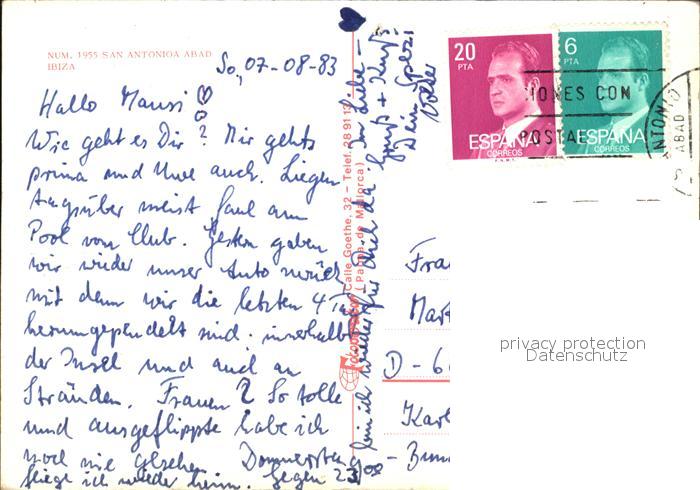 NUM. 1955 SAN ANTONIOA ABAD
IBIZA
So, 07-08-83
Hallo Mausi
Wie geht es Dir? Mir gehts
prima und Uwe auch. Liegen
tagsüber meist faul am
Pool vom Club. Gestern gaben
wir wieder unser Auto zurück
mit dem wir die letzten 4 Ta
herumgependelt sind. innerhalb
der Insel und auch an
Stränden. Frauen? So tolle
und ausgeflippte habe ich
noch nie gesehen. Donnerstag
fliege ich wieder heim. Gegen 23
bin ich wieder für Dich da. In Liebe -
Gruß + Kuß
Dein Spezi
Calle Goethe, 32 - Telef. 28 91 12
(Palma de Mallorca)
20
PTA
ESPAÑA
CORREOS
6
PTA
ESPAÑA
CORREOS
IONES CON
POSTAL
ANTONIO
ABAD
Frau
D - 6
privacy protection
Datenschutz